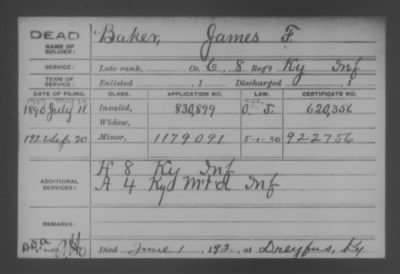 DEAD Baker, James F.
NAME OF SOLDIER:
SERVICE: Late rank, Co. C, 8 Reg't Ky Inf
TERM OF SERVICE: Enlisted , 1 Discharged , 1
DATE OF FILING. CLASS. APPLICATION NO. LAW. CERTIFICATE NO.
1890 July 11 Invalid, 830,899 620,356
Widow,
192 Sep. 20 Minor, 1179091 5-1-20 922756
ADDITIONAL SERVICES: K 8 Ky Inf
A 4 Ky Mtd Inf
REMARKS:
Died June 1, 192 , at Dreyfus, Ky